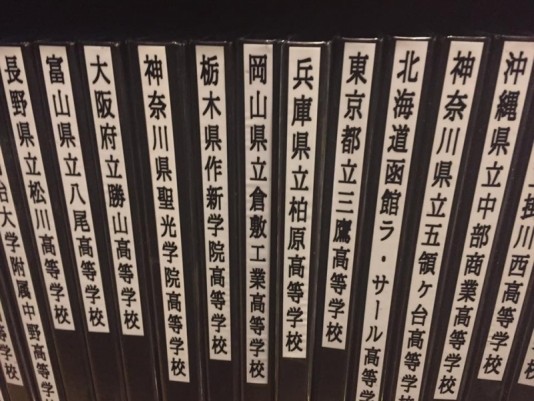 等学校
治大学附属中野高等学校
長野県立松川高等学校
富山県立八尾高等学校
大阪府立勝山高等学校
神奈川県聖光学院高等学校
栃木県作新学院高等学校
岡山県立倉敷工業高等学校
兵庫県立柏原高等学校
東京都立三鷹高等学校
北海道函館ラ・サール高等学
神奈川県立五領ヶ台高等学校
沖縄県立中部商業高等学校
掛川西高等学校
校